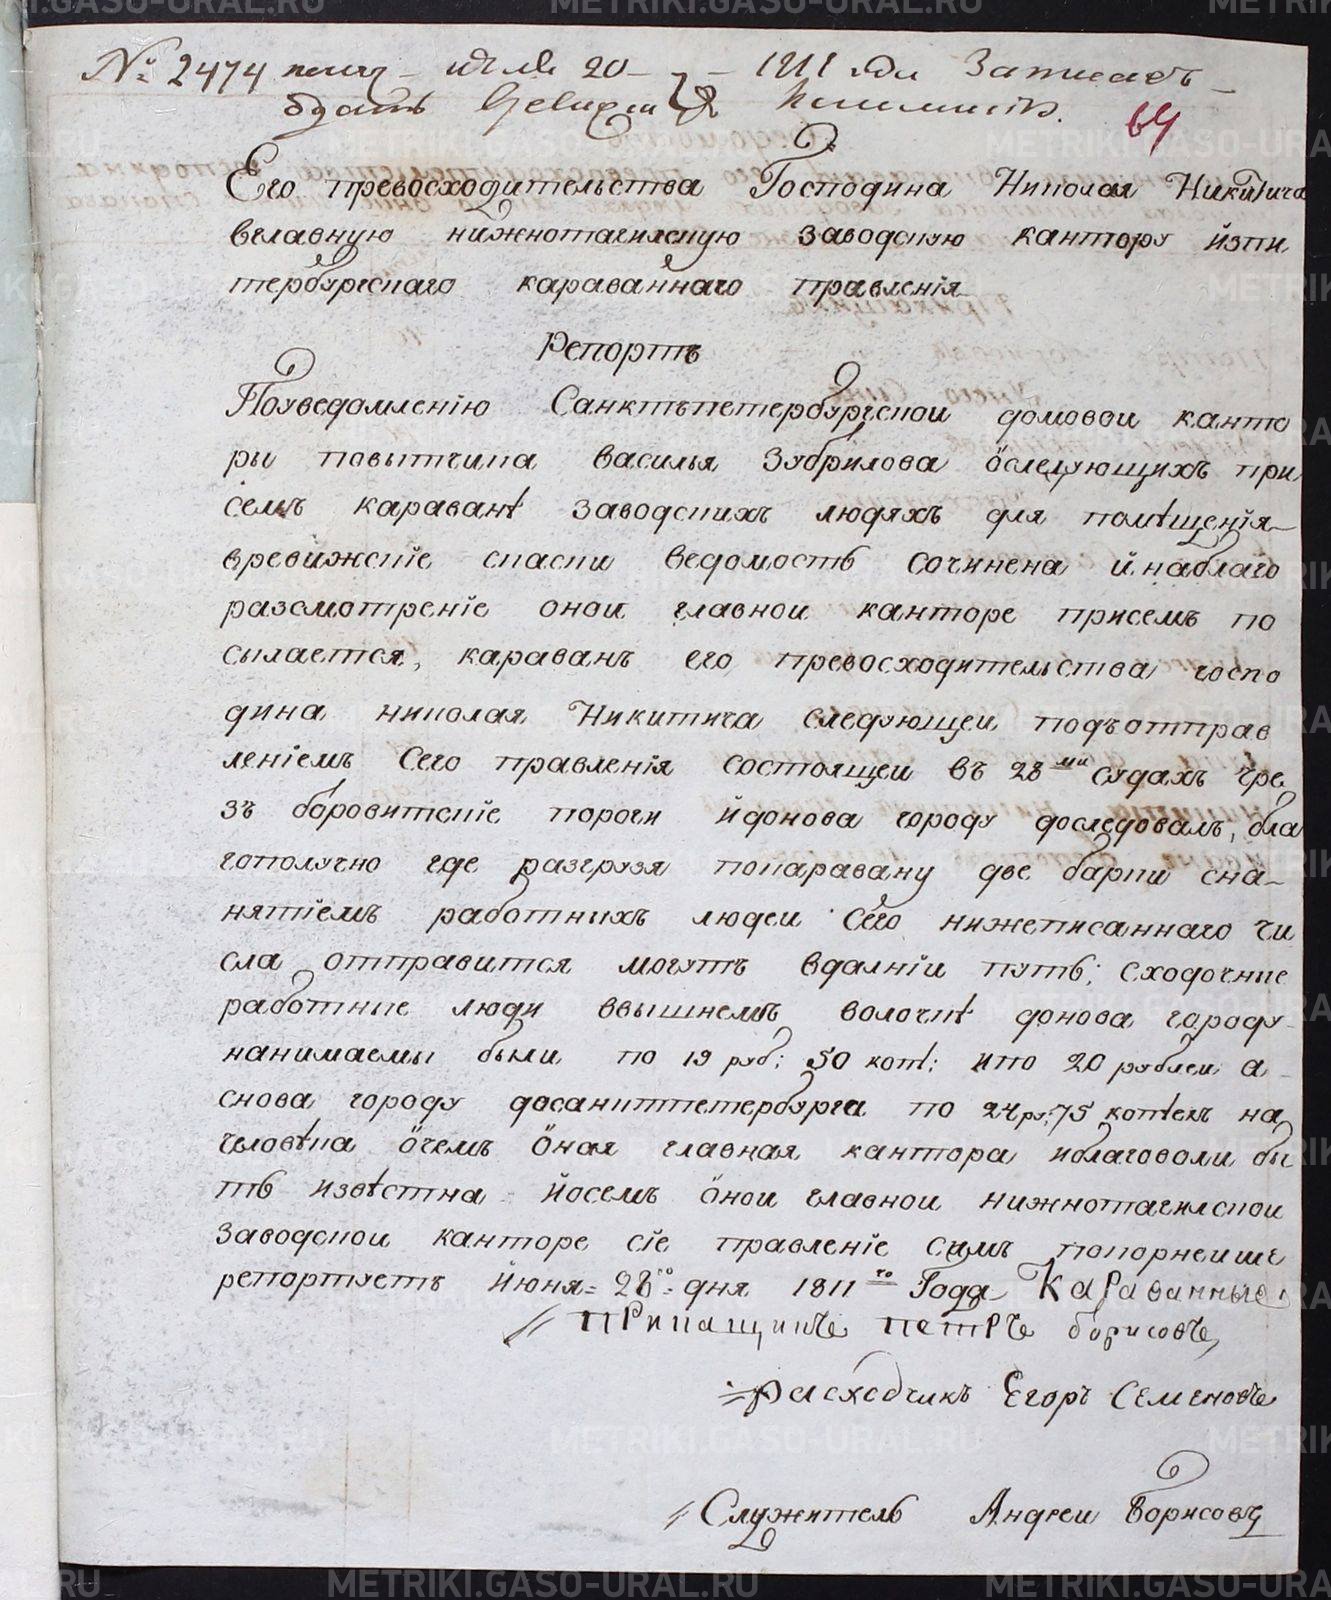 № 2474 получ. июля 20 1811 года Записавъ
69
Его превосходительства Господина Николая Никитича
вглавную нижнотагилскую заводскую кантору изпи
тербургскаго караваннаго правления
Репортъ
Поуведомлению Санктъпетербургскои домовои канто
ры повытчика василья Зубрилова ӧследующихъ при
семъ караванѣ заводскихъ людяхъ для помѣщенія
вревижскіе спаски ведомость сочинена йнаблаго
разсмотреніе онои главнои канторе присемъ по
сылается, караванъ его превосходительства госпо
дина николая Никитича следующеи подъотправ
леніемъ Сего правленія состоящеи въ 28ми судахъ чре
зъ боровитскіе пороги йдонова городу доследовалъ, бла
гополучно где разгрузя покаравану две барки сна
нятіемъ работнихъ людеи Сего нижеписаннаго чи
сла отправится могутъ вдалніи путь; сходочние
работние люди ввышнемъ волочкѣ донова городу
нанимаемы были по 19 руб: 50 коп: ипо 20 рублеи а
снова городу досанктпетербурга по 24 ру: 75 копѣек на
человѣка ӧчемъ ӧная главная кантора иблаговоли бы
ть извѣстна йосемъ ӧнои главнои нижнотагилскои
Заводскои канторе сіе правленіе Симъ покорнеише
репортуетъ йюня 28го дня 1811го Года Караванные
прикащикъ петръ борисовъ,
расходчикъ Егоръ Семеновъ
Служитель Андреи Борисовъ